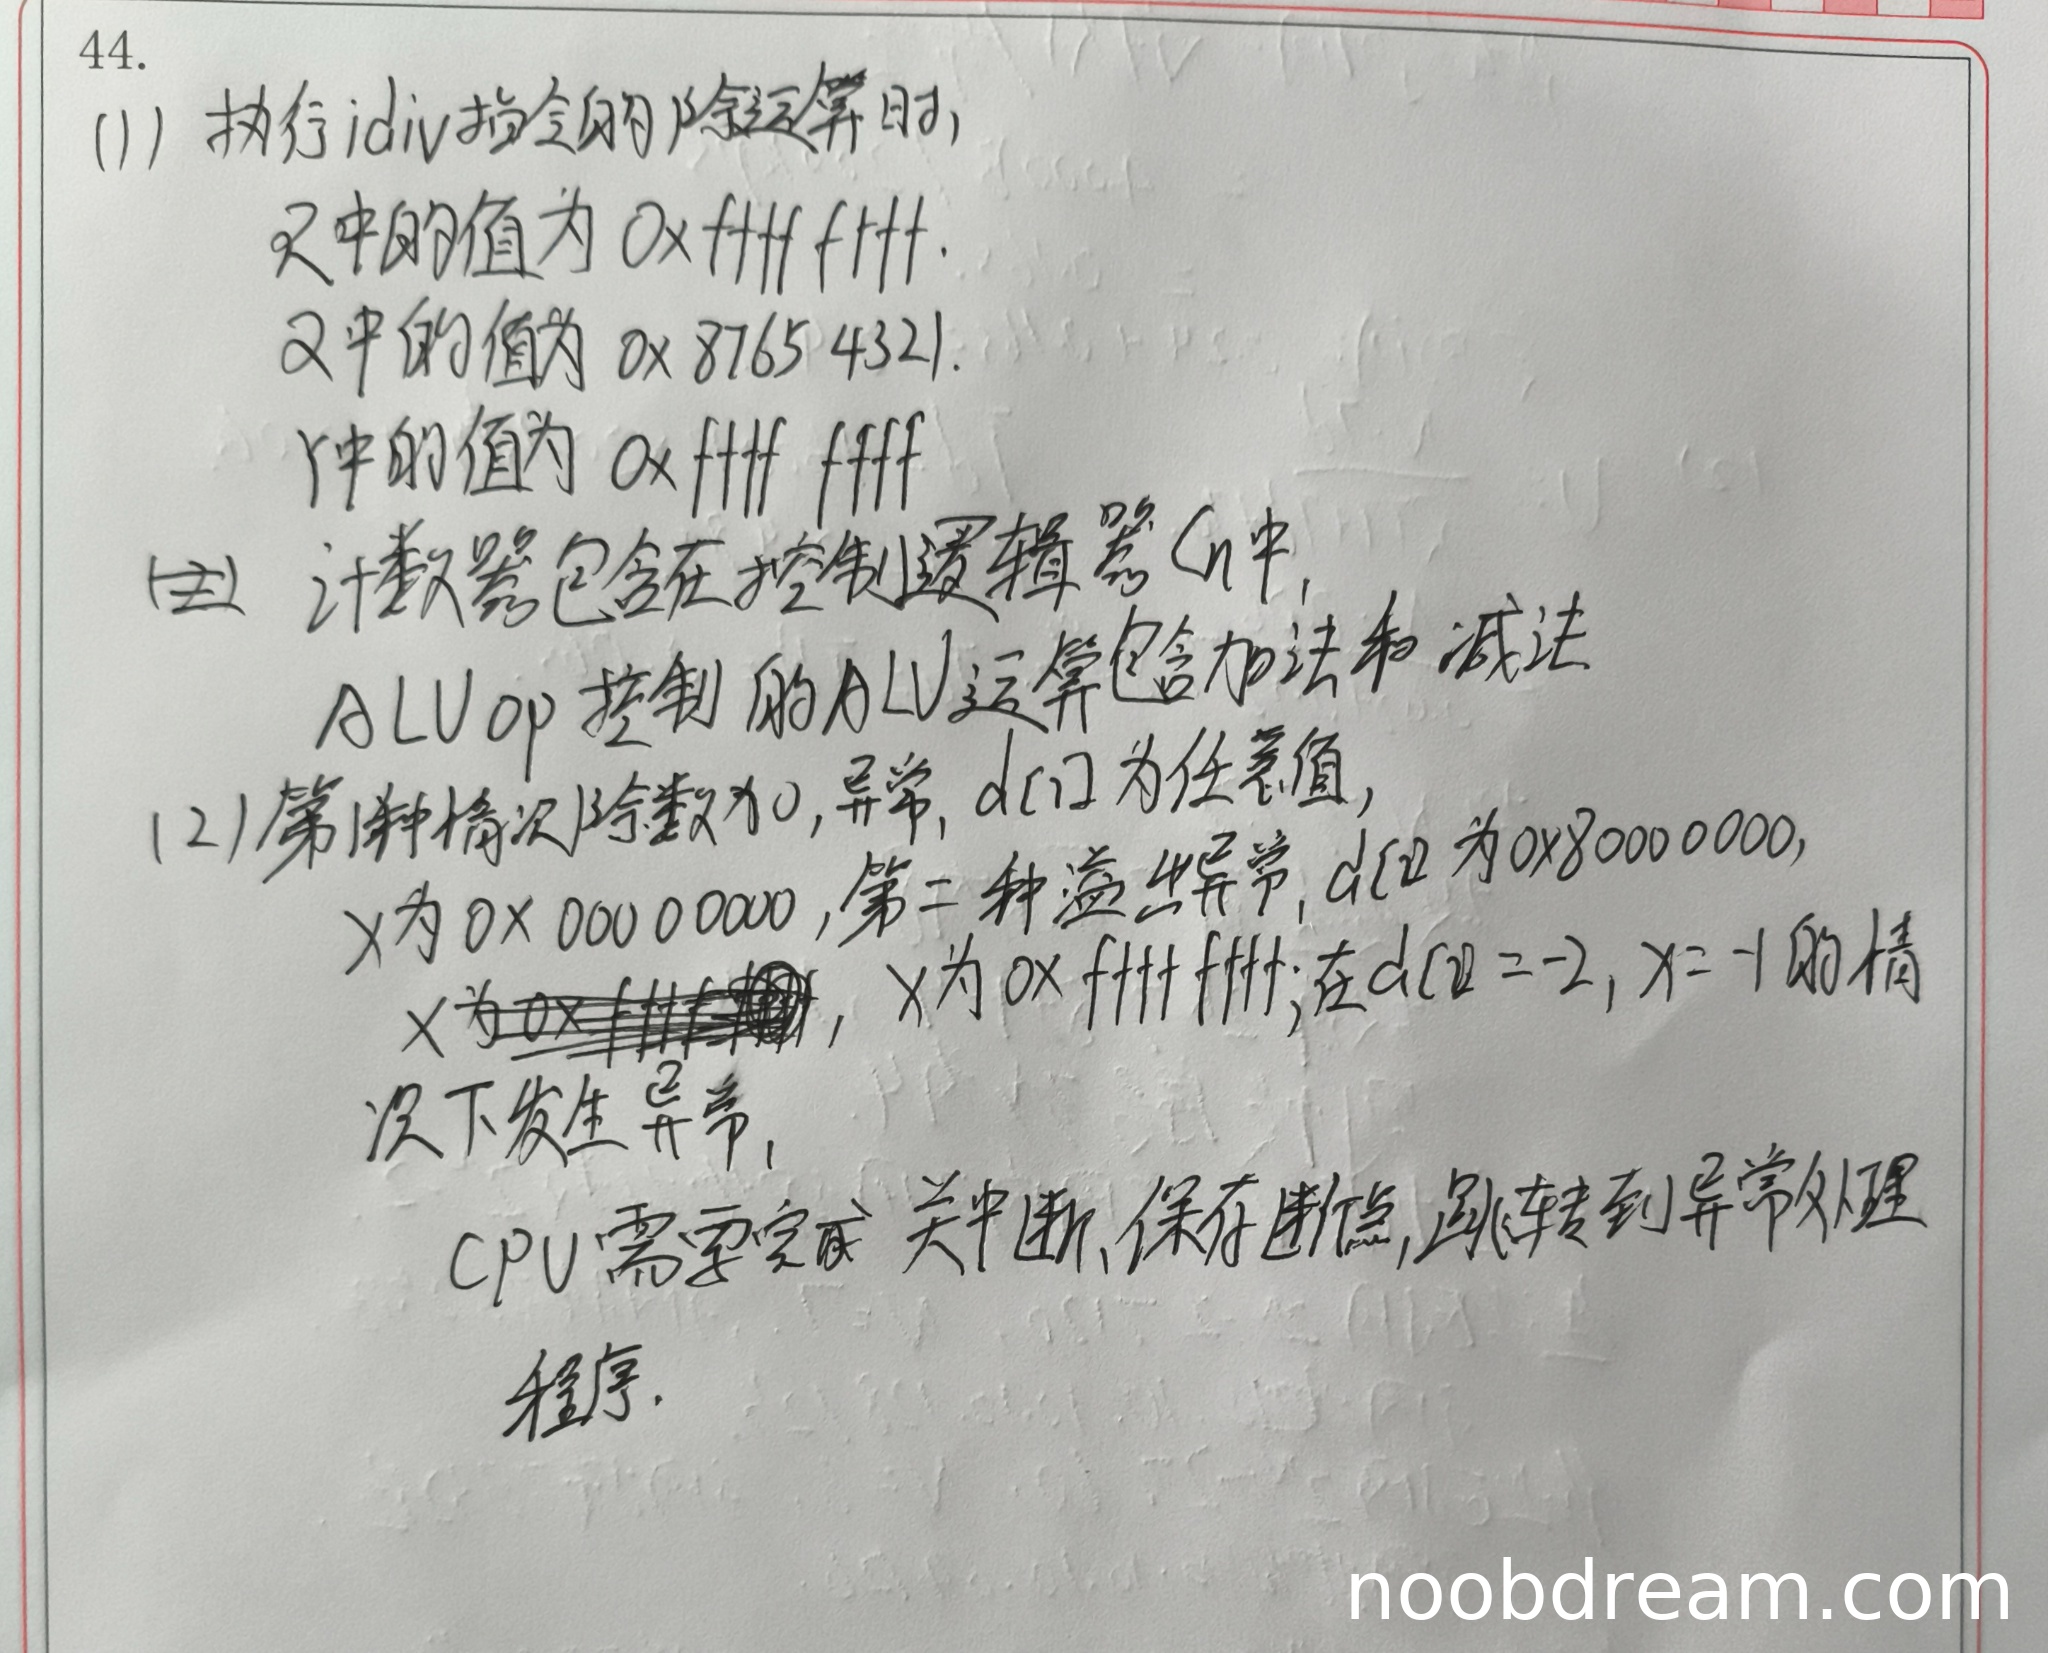 44.
(1) 执行idiv指令的除运算时,
R中的值为 0xffff ffff.
Q中的值为 0x 8765 4321.
Y中的值为 0x ffff ffff
计数器包含在控制逻辑器Cn中,
ALUop 控制的ALU运算包含加法和减法
(2) 第1种情况除数为0, 异常, d[i]为任意值,
x为 0x 0000 0000, 第二种溢出异常, d[i]为0x80000000,
x为 , x为 0x ffff ffff; 在d[i] = -2, x = -1 的情
况下发生异常,
CPU需要完成 关中断、保存断点, 跳转到异常处理
程序.
noobdream.com